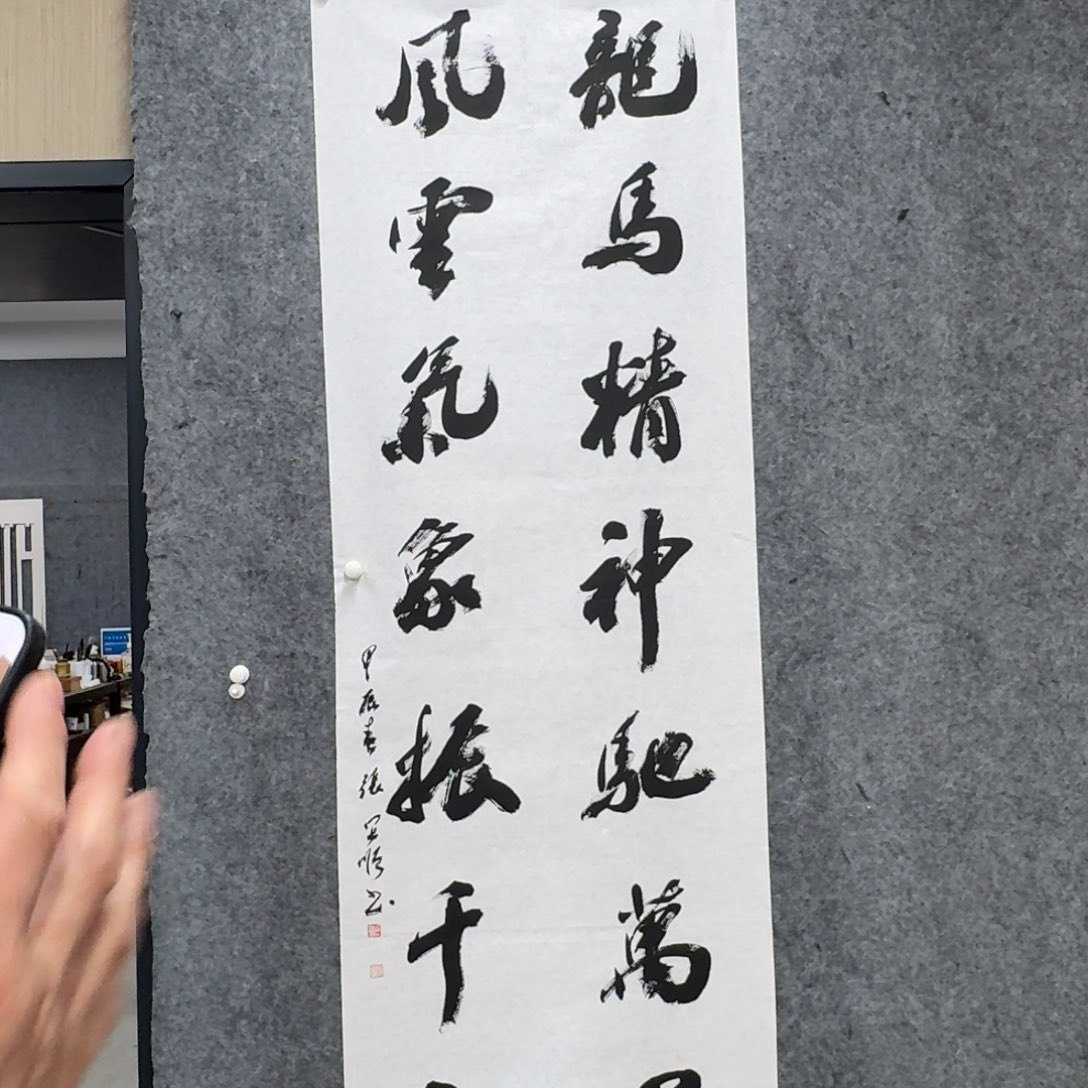 龍馬精神馳萬里
風雲氣象振千
甲辰春張書